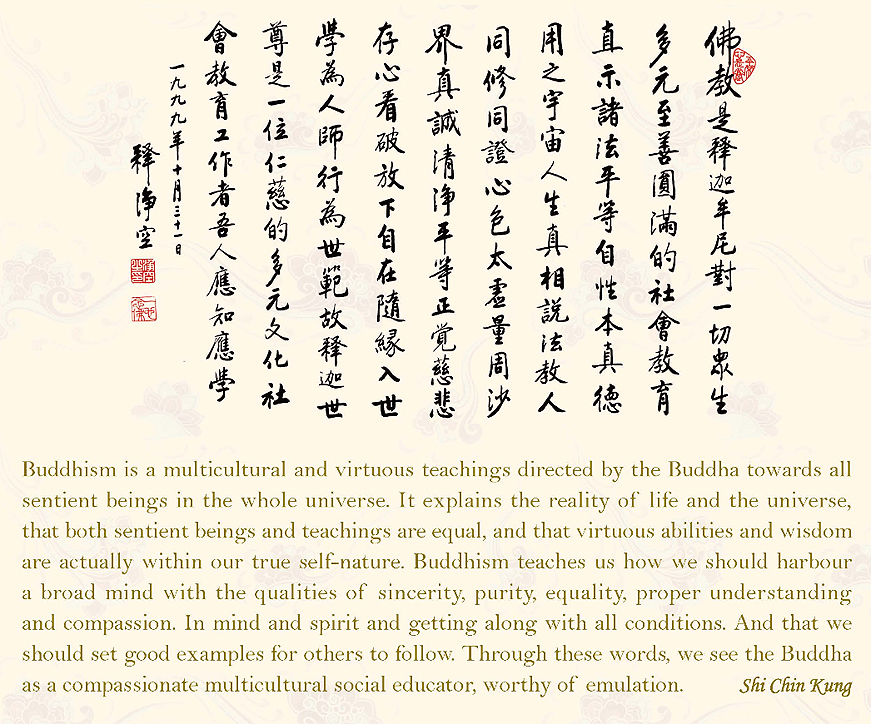 佛教是釋迦牟尼對一切眾生
多元至善圓滿的社會教育
直示諸法平等自性本真德
用之宇宙人生真相説法教人
同修同證心包太虛量周沙
界真誠清淨平等正覺慈悲
存心看破放下自在隨緣入世
學為人師行為世範故釋迦世
尊是一位仁慈的多元文化社
會教育工作者吾人應知應學
一九九九年十月三十一日
釋淨空
Buddhism is a multicultural and virtuous teachings directed by the Buddha towards all
sentient beings in the whole universe. It explains the reality of life and the universe,
that both sentient beings and teachings are equal, and that virtuous abilities and wisdom
are actually within our true self-nature. Buddhism teaches us how we should harbour
a broad mind with the qualities of sincerity, purity, equality, proper understanding
and compassion. In mind and spirit and getting along with all conditions. And that we
should set good examples for others to follow. Through these words, we see the Buddha
as a compassionate multicultural social educator, worthy of emulation. Shi Chin Kung